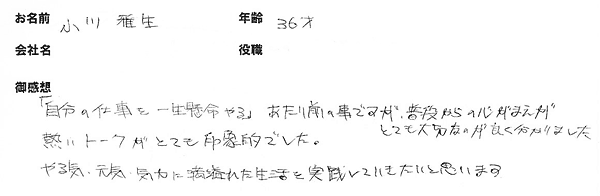 お名前 小川 雅生 年齢 36才
会社名 役職
御感想
「自分の仕事を一生懸命やる」あたり前の事ですが、普段からの心がまえが
とても大切なのが良く分かりました
熱いトークがとても印象的でした。
やる気・元気・気力に満溢れた生活を実践していきたいと思います